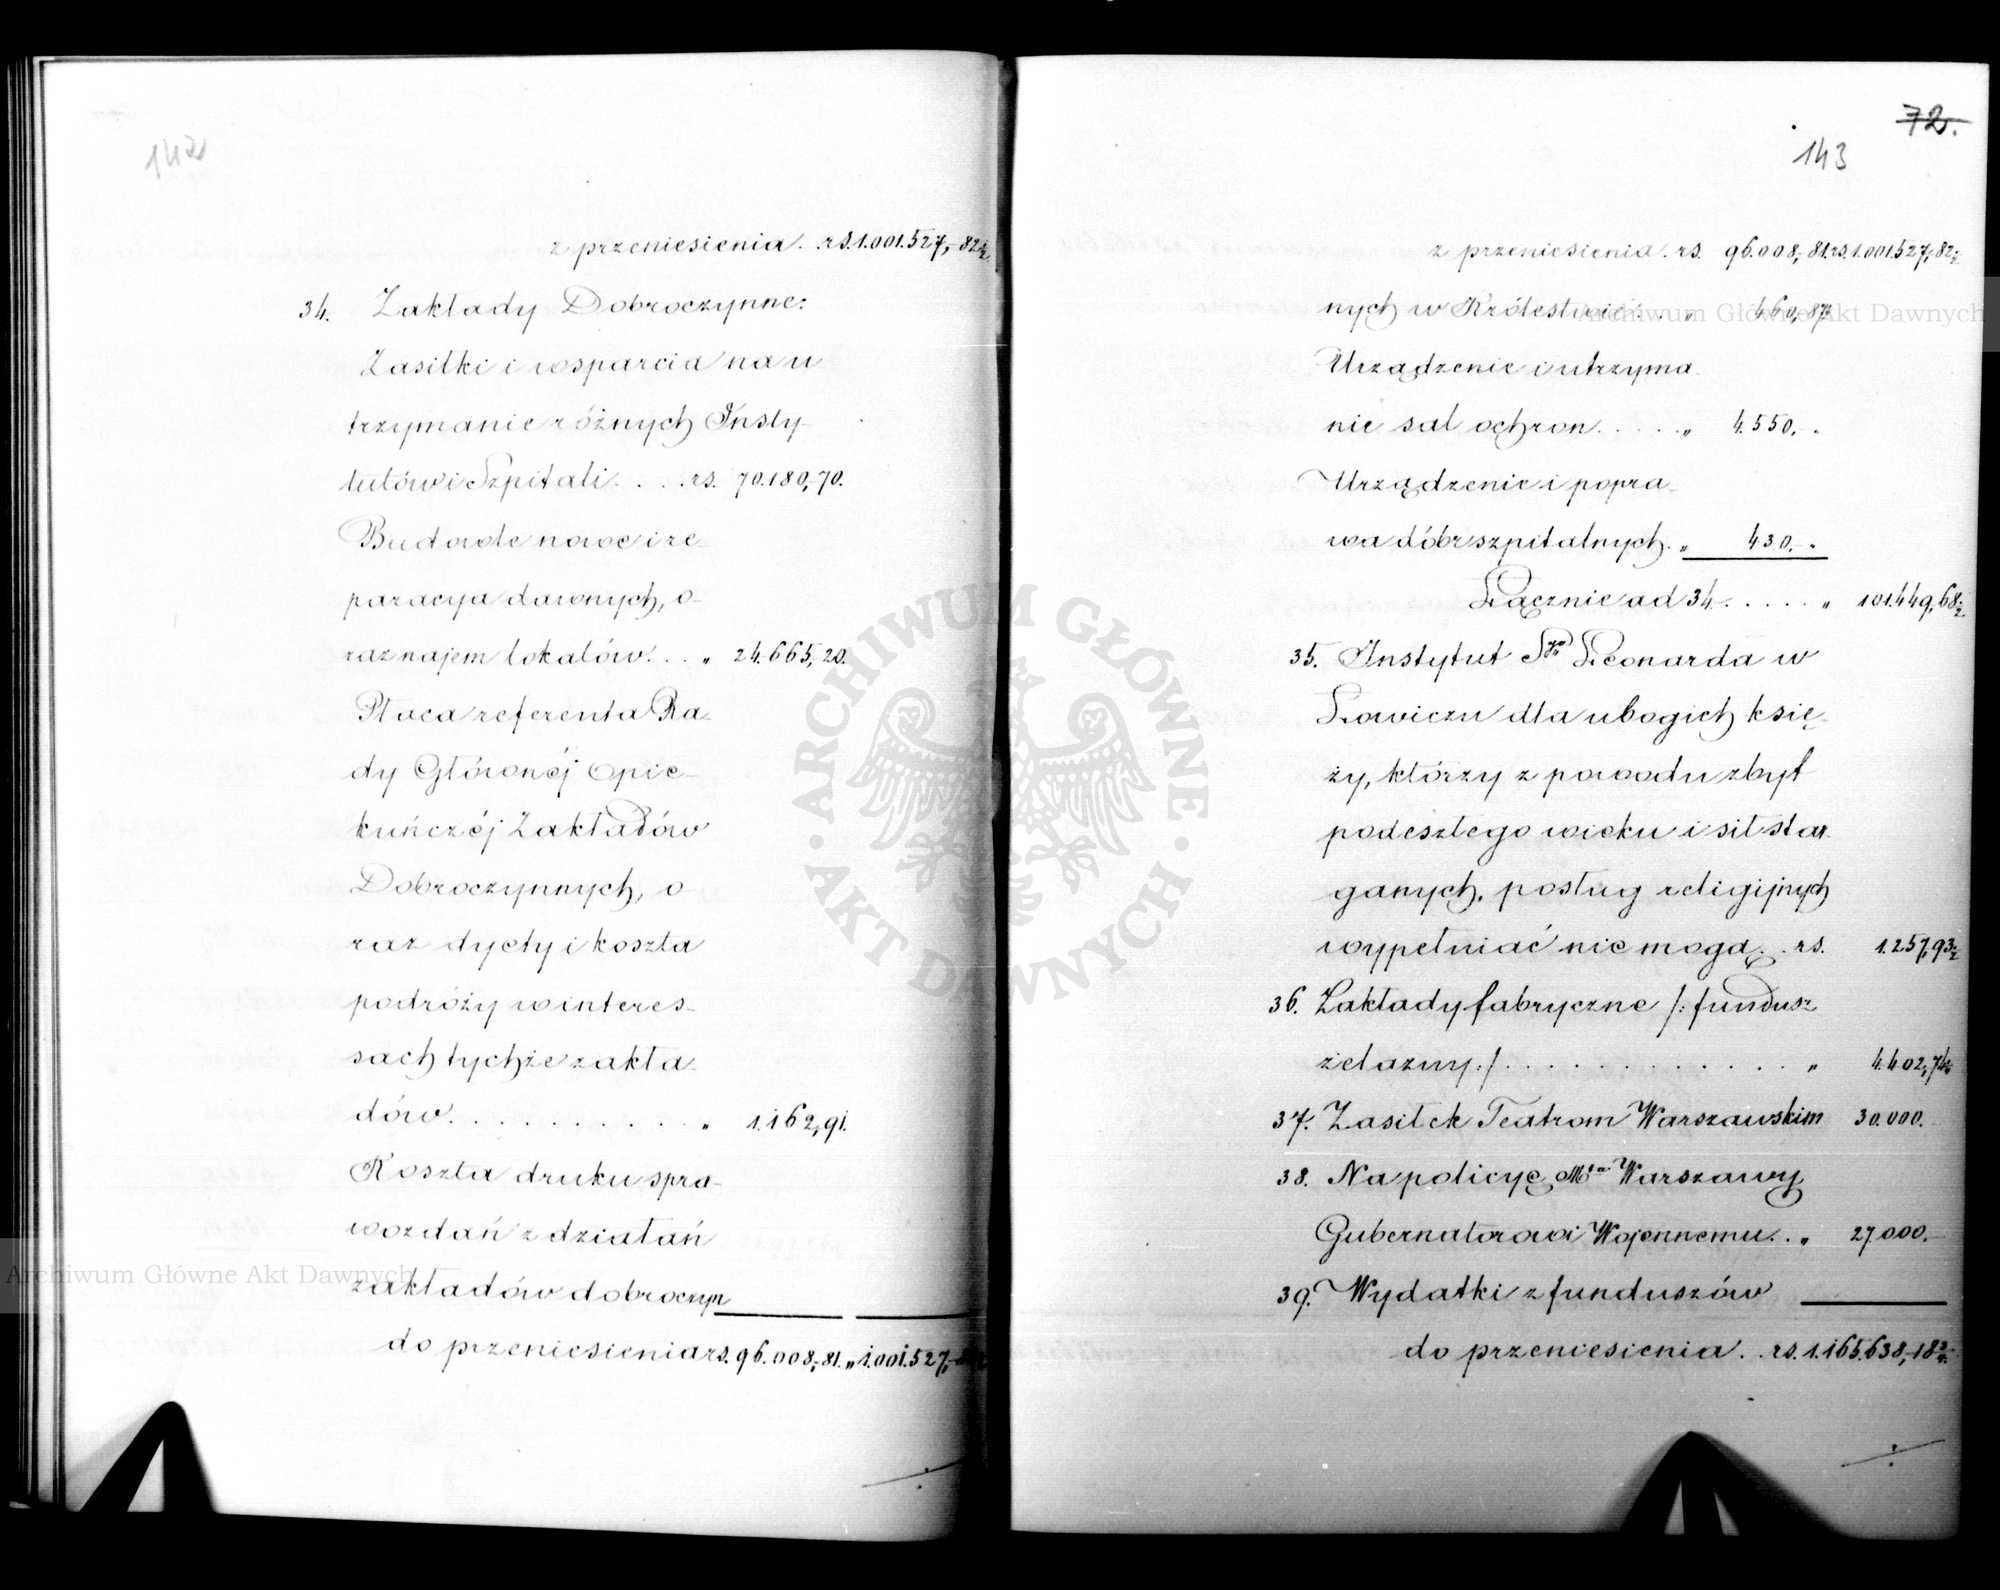 142
z przeniesienia . rs. 1.001.527,82½
34. Zakłady Dobroczynne:
Zasiłki i wsparcia na u-
trzymanie różnych Insty-
tutów i Szpitali . . . . rs. 70.180,70.
Budowle nowe i re-
paracya dawnych, o-
raz najem lokalów . . . „ 24.665,20.
Płaca referenta Ra-
dy Głównéj Opie-
kuńczéj Zakładów
Dobroczynnych, o
raz dyety i koszta
podróży w interes-
sach tychże zakła-
dów . . . . . . . . . . . „ 1.162,91.
Koszta druku spra-
wozdań z działań
zakładów dobroczyn
do przeniesienia rs. 96.008,81. „ 1.001.527,
72.
143
z przeniesienia . rs. 96.008,81. rs. 1.001.527,82½
nych w Królestwie . . . „ 460,87
Urządzenie i utrzyma-
nie sal ochron . . . . . „ 4.550. „
Urządzenie i popra-
wa dóbr szpitalnych . „ 430. „
Łącznie ad 34 . . . . . „ 101.449,68½
35. Instytut Sgo Leonarda w
Łowiczu dla ubogich księ-
ży, którzy z powodu zbyt
podeszłego wieku i sił star-
ganych, posług religijnych
wypełniać nie mogą . . rs. 1.257,93½
36. Zakłady fabryczne /: fundusz
żelazny :/ . . . . . . . . . . . . . „ 4.402,74
37. Zasiłek Teatrom Warszawskim 30.000.
38. Na policyę Mta Warszawy
Gubernatorowi Wojennemu . . „ 27.000.
39. Wydatki z funduszów
do przeniesienia . . rs. 1.165.638,18¾
Archiwum Główne Akt Dawnych
Archiwum Główne Akt Dawnych
ARCHIWUM GŁÓWNE · AKT DAWNYCH ·